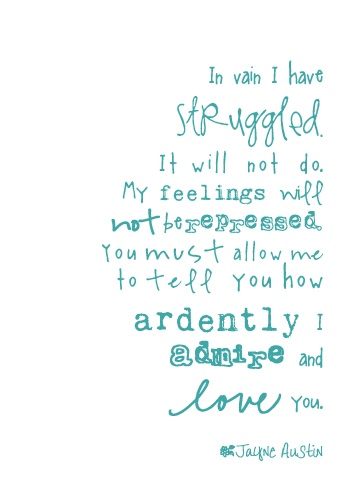 In vain I have
struggled.
It will not do.
My feelings will
not be repressed.
You must allow me
to tell you how
ardently I
admire and
love you.
Jayne Austin